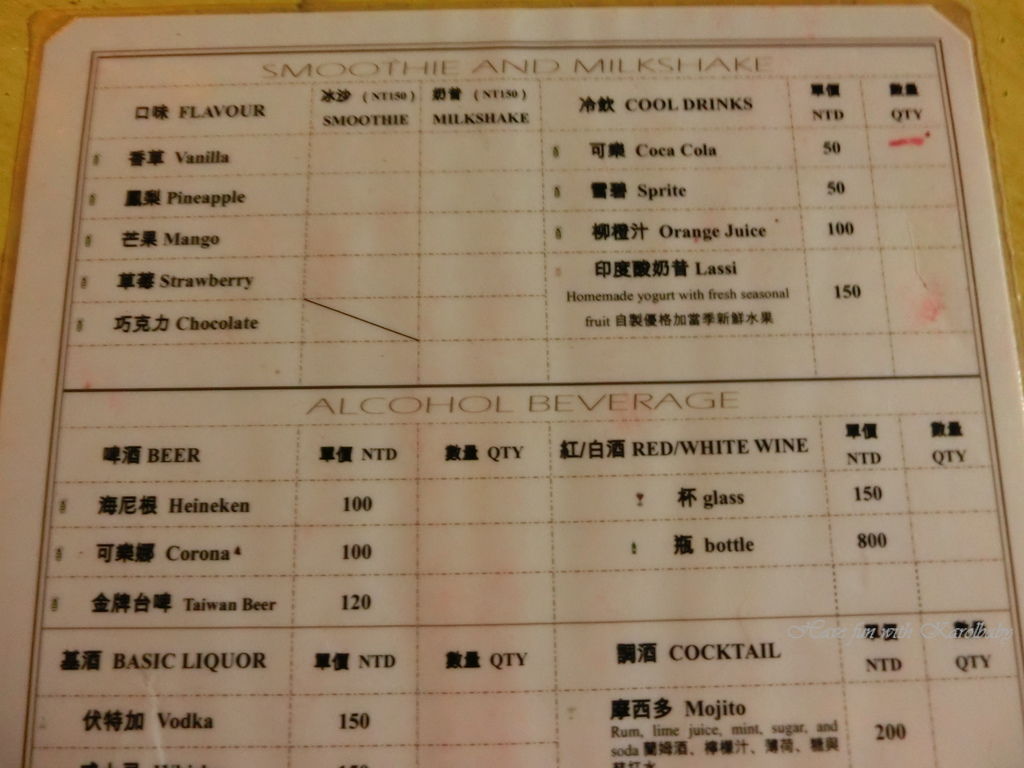 SMOOTHIE AND MILKSHAKE
口味 FLAVOUR
冰沙 (NT150) SMOOTHIE
奶昔 (NT150) MILKSHAKE
香草 Vanilla
鳳梨 Pineapple
芒果 Mango
草莓 Strawberry
巧克力 Chocolate
冷飲 COOL DRINKS 單價 NTD 數量 QTY
可樂 Coca Cola 50
雪碧 Sprite 50
柳橙汁 Orange Juice 100
印度酸奶昔 Lassi 150
Homemade yogurt with fresh seasonal
fruit 自製優格加當季新鮮水果
ALCOHOL BEVERAGE
啤酒 BEER 單價 NTD 數量 QTY
海尼根 Heineken 100
可樂娜 Corona 100
金牌台啤 Taiwan Beer 120
紅/白酒 RED/WHITE WINE 單價 NTD 數量 QTY
杯 glass 150
瓶 bottle 800
基酒 BASIC LIQUOR 單價 NTD 數量 QTY
伏特加 Vodka 150
調酒 COCKTAIL NTD QTY
摩西多 Mojito 200
Rum, lime juice, mint, sugar, and
soda 蘭姆酒、檸檬汁、薄荷、糖與
Have fun with Karolbaby